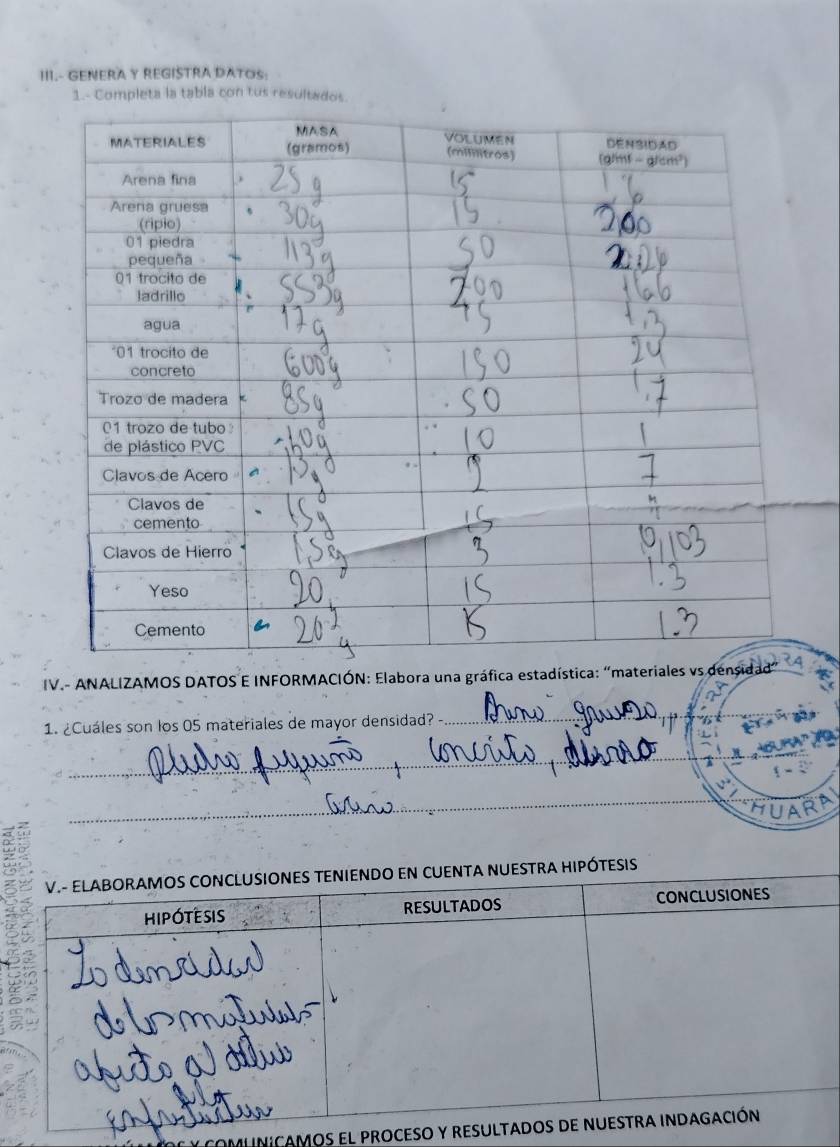 III.- GENERA Y REGISTRA DATOS:
1.- Completa la tabla con tus resultados.
MATERIALES MASA (gramos) VOLUMEN (mililitros) DENSIDAD (g/ml - g/cm³)
Arena fina 25 g 15 1,6
Arena gruesa (ripio) 30g 15 2,00
01 piedra pequeña 113g 50 2.26
01 trocito de ladrillo 553g 200
agua 17g 1,3
01 trocito de concreto 600g 150 24
Trozo de madera 85g 50 1,7
01 trozo de tubo de plástico PVC 10g 10 1
Clavos de Acero 13g 7
Clavos de cemento 15g 15
Clavos de Hierro 3 0,103
Yeso 20 15 1.3
Cemento 20 g 15 1.3
IV.- ANALIZAMOS DATOS E INFORMACIÓN: Elabora una gráfica estadística: "materiales vs densidad"
1. ¿Cuáles son los 05 materiales de mayor densidad? -
concreto,
HUARAL
V.- ELABORAMOS CONCLUSIONES TENIENDO EN CUENTA NUESTRA HIPÓTESIS
HIPÓTESIS RESULTADOS CONCLUSIONES
La densidad
de los materiales
SUB DIRECTOR FORMACIÓN GENERAL
NUESTRA SEÑORA DE
COMUNICAMOS EL PROCESO Y RESULTADOS DE NUESTRA INDAGACIÓN